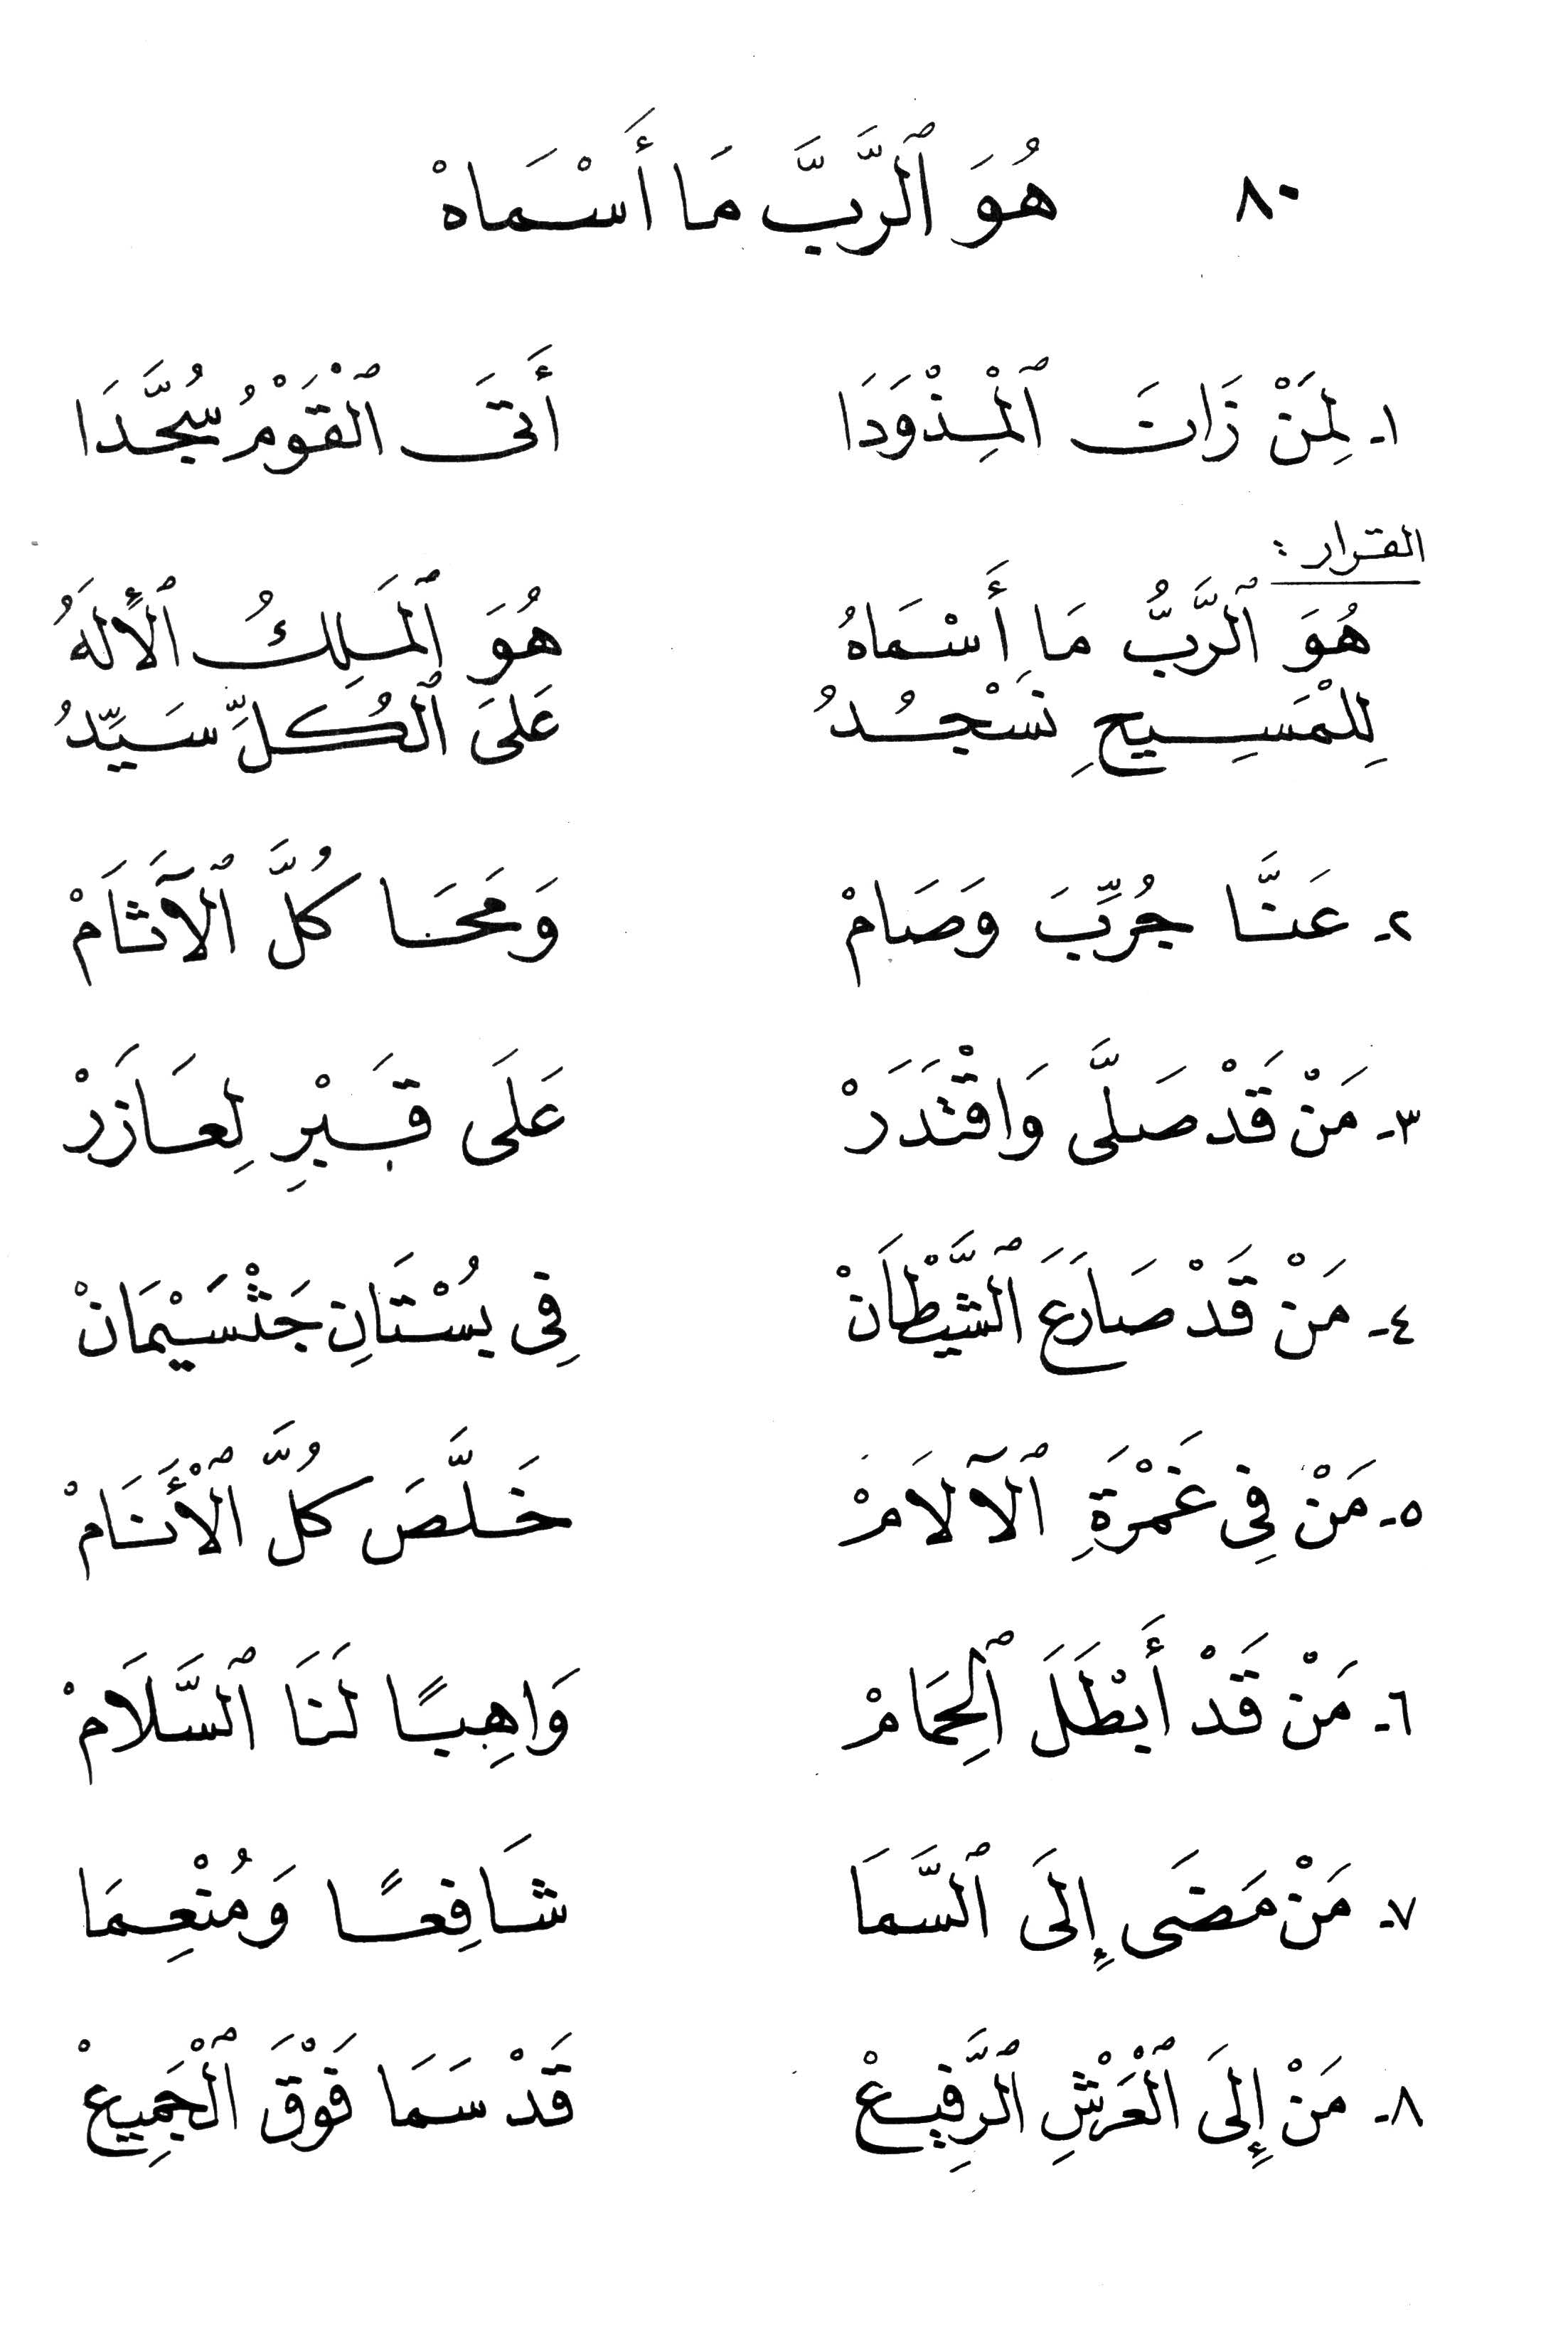 ٨٠ هُوَ ٱلرَّبَّ مَا أَسْمَاهْ
١- لِمَنْ زَاتَ ٱلْمِذْوَدَا أَتَى ٱلْقَوْمُ سُجَّدَا
القرار :
هُوَ ٱلرَّبُّ مَا أَسْمَاهُ هُوَ ٱلْمَلِكُ ٱلْأِلَهُ
لِلْمَسِيحِ نَسْجُدُ عَلَى ٱلْكُلِّ سَيِّدُ
٢- عَنَّا جُرِّبَ وَصَامْ وَمَحَا كُلَّ ٱلآثَامْ
٣- مَنْ قَدْ صَلَّى وَاقْتَدَرْ عَلَى قَبْرِ لِعَازَرْ
٤- مَنْ قَدْ صَارَعَ ٱلشَّيْطَانْ فِي بُسْتَانِ جَثْسَيْمَانْ
٥- مَنْ فِي غَمْرَةِ ٱلآلَامْ خَلَّصَ كُلَّ ٱلْأَنَامْ
٦- مَنْ قَدْ أَبْطَلَ ٱلْحِمَامْ وَاهِبًا لَنَا ٱلسَّلَامْ
٧- مَنْ مَضَى إِلَى ٱلسَّمَا شَافِعًا وَمُنْعِمَا
٨- مَنْ إِلَى ٱلْعَرْشِ ٱلرَّفِيعْ قَدْ سَمَا فَوْقَ ٱلْجَمِيعْ